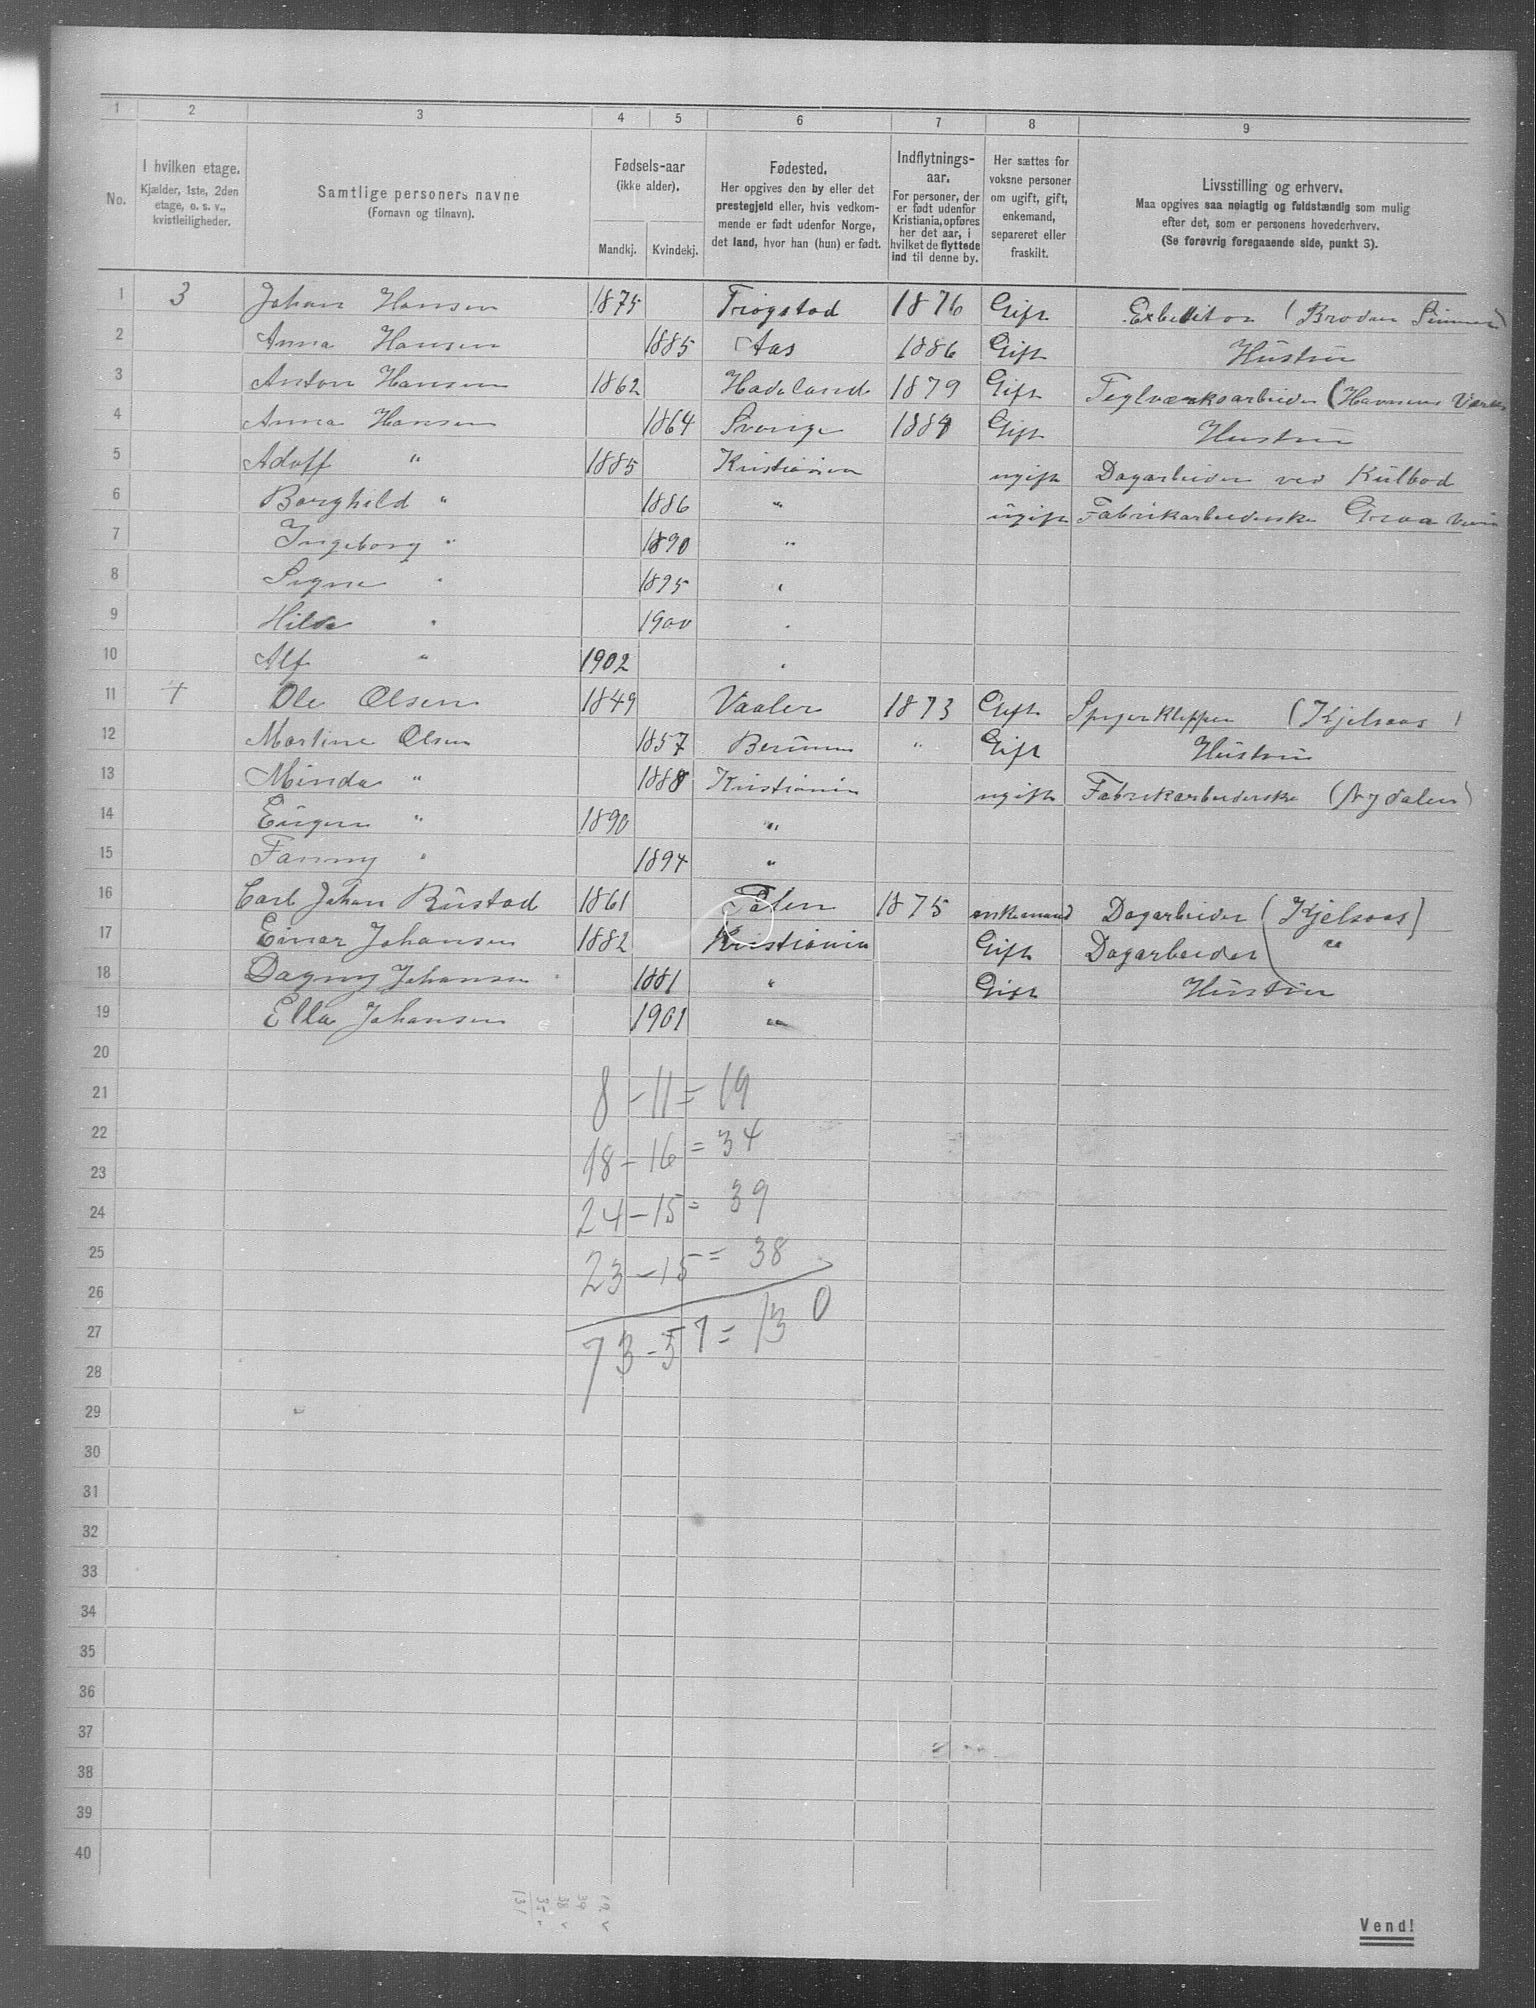 1 2 3 4 5 6 7 8 9
No.
I hvilken etage.
Kjælder, 1ste, 2den
etage, o. s. v.,
kvistleiligheder.
Samtlige personers navne
(Fornavn og tilnavn).
Fødsels-aar
(ikke alder).
Mandkj. Kvindekj.
Fødested.
Her opgives den by eller det
prestegjeld eller, hvis vedkom-
mende er født udenfor Norge,
det land, hvor han (hun) er født.
Indflytnings-
aar.
For personer, der
er født udenfor
Kristiania, opføres
her det aar, i
hvilket de flyttede
ind til denne by.
Her sættes for
voksne personer
om ugift, gift,
enkemand,
separeret eller
fraskilt.
Livsstilling og erhverv.
Maa opgives saa nøiagtig og fuldstændig som mulig
efter det, som er personens hovederhverv.
(Se forøvrig foregaaende side, punkt 3).
1 3 Johan Hansen 1875 Trøgstad 1876 Gift (Brødrn
2 Anna Hansen 1885 Aas 1886 Gift Hustru
3 Anton Hansen 1862 Hadeland 1879 Gift Teglværksarbeider (
4 Anna Hansen 1864 Sverige 1884 Gift Hustru
5 Adolf " 1885 Kristiania ugift Dagarbeider ved Kulbod
6 Borghild " 1886 " ugift Fabrikarbeiderske Graa
7 Ingeborg " 1890 "
8 Signe " 1895 "
9 Hilda " 1900 "
10 Alf " 1902 "
11 4 Ole Olsen 1849 Vaaler 1873 Gift Spigerklipper (Kjelsaas)
12 Martine Olsen 1857 Berum " Gift Hustru
13 Minda " 1888 Kristiania ugift Fabrikarbeiderske (Nydalen)
14 Eugen " 1890 "
15 Fanny " 1894 "
16 Carl Johan Rustad 1861 1875 enkemand Dagarbeider (Kjelsaas)
17 Einar Johansen 1882 Kristiania Gift Dagarbeider "
18 Dagny Johansen 1881 " Gift Hustru
19 Ella Johansen 1901 "
20
21 8 - 11 = 19
22 18 - 16 = 34
23
24 24 - 15 = 39
25 23 - 15 = 38
26
27 73 - 57 = 130
28
29
30
31
32
33
34
35
36
37
38
39
40
19 v
39
38 v
35 -
131
Vend!